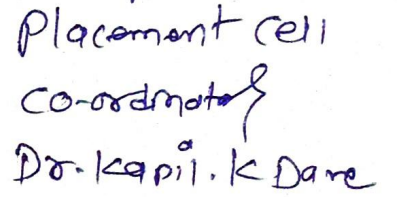 Placement Cell
Co-ordinator
Dr. Kapil. K Dave